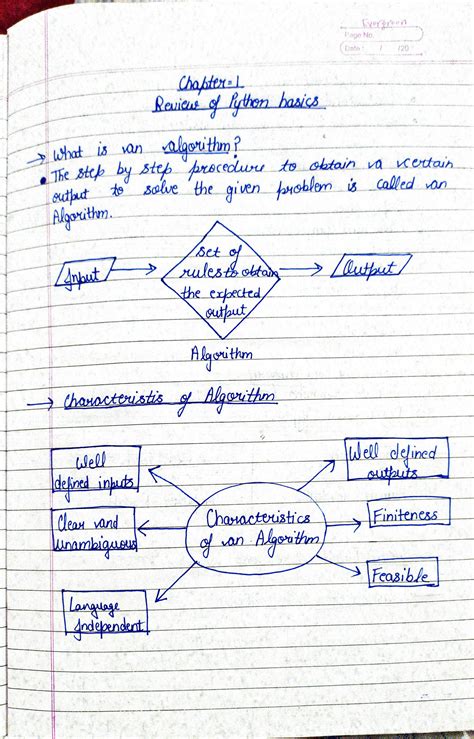 Evergreen
Page No.
Date: / /20
Chapter=1
Review of Python basics
→ What is an algorithm?
• The step by step procedure to obtain a certain
output to solve the given problem is called an
Algorithm.
Input
set of
rules to obtain
the expected
output
Output
Algorithm
→ Characteristis of Algorithm
Well
defined inputs
Well defined
outputs
Clear and
Unambiguous
Characteristics
of an Algorithm
Finiteness
Feasible
Language
Independent